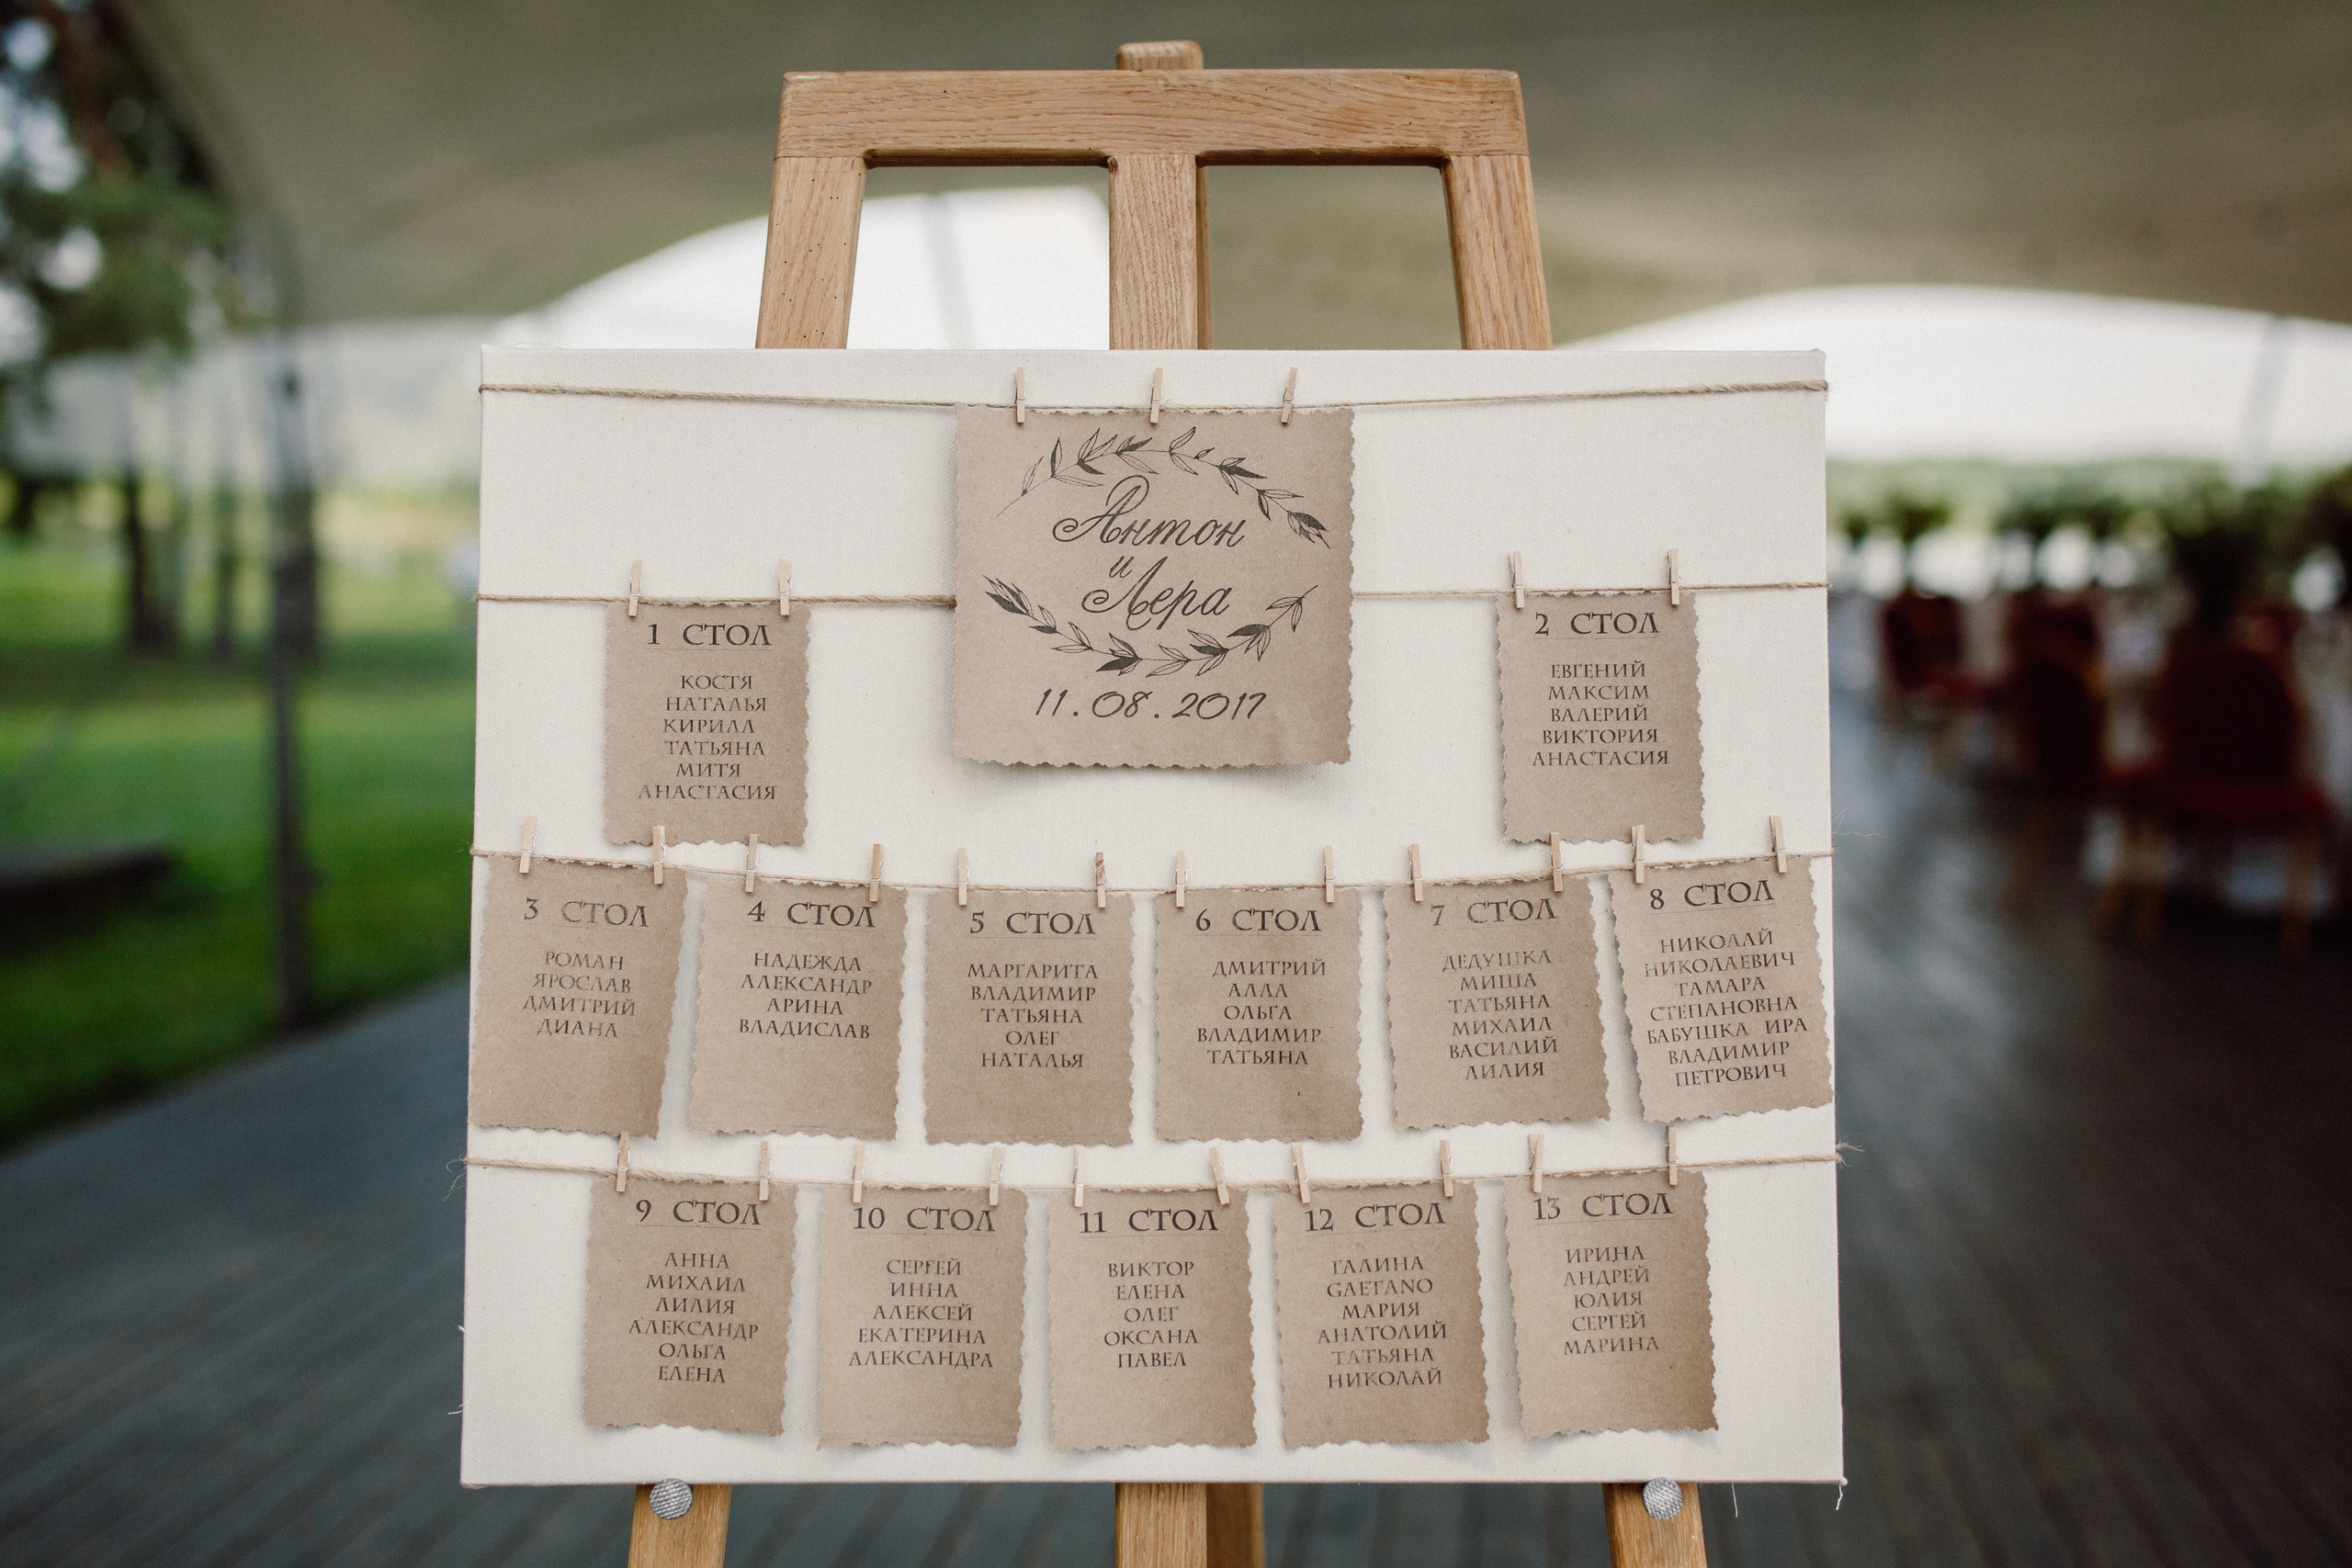 Антон
и
Лера
11.08.2017
1 СТОЛ
КОСТЯ
НАТАЛЬЯ
КИРИЛЛ
ТАТЬЯНА
МИТЯ
АНАСТАСИЯ
2 СТОЛ
ЕВГЕНИЙ
МАКСИМ
ВАЛЕРИЙ
ВИКТОРИЯ
АНАСТАСИЯ
3 СТОЛ
РОМАН
ЯРОСЛАВ
ДМИТРИЙ
ДИАНА
4 СТОЛ
НАДЕЖДА
АЛЕКСАНДР
АРИНА
ВЛАДИСЛАВ
5 СТОЛ
МАРГАРИТА
ВЛАДИМИР
ТАТЬЯНА
ОЛЕГ
НАТАЛЬЯ
6 СТОЛ
ДМИТРИЙ
АЛЛА
ОЛЬГА
ВЛАДИМИР
ТАТЬЯНА
7 СТОЛ
ДЕДУШКА
МИША
ТАТЬЯНА
МИХАИЛ
ВАСИЛИЙ
ЛИЛИЯ
8 СТОЛ
НИКОЛАЙ
НИКОЛАЕВИЧ
ТАМАРА
СТЕПАНОВНА
БАБУШКА ИРА
ВЛАДИМИР
ПЕТРОВИЧ
9 СТОЛ
АННА
МИХАИЛ
ЛИЛИЯ
АЛЕКСАНДР
ОЛЬГА
ЕЛЕНА
10 СТОЛ
СЕРГЕЙ
ИННА
АЛЕКСЕЙ
ЕКАТЕРИНА
АЛЕКСАНДРА
11 СТОЛ
ВИКТОР
ЕЛЕНА
ОЛЕГ
ОКСАНА
ПАВЕЛ
12 СТОЛ
ГАЛИНА
GAETANO
МАРИЯ
АНАТОЛИЙ
ТАТЬЯНА
НИКОЛАЙ
13 СТОЛ
ИРИНА
АНДРЕЙ
ЮЛИЯ
СЕРГЕЙ
МАРИНА